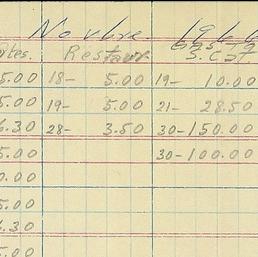 Novbre. 1960
otes. Restaur
5.00 18- 5.00 19- 10.00
5.00 19- 5.00 21- 28.50
6.30 28- 3.50 30-150.00
5.00 30-100.00
0.00
5.00
6.30
5.00